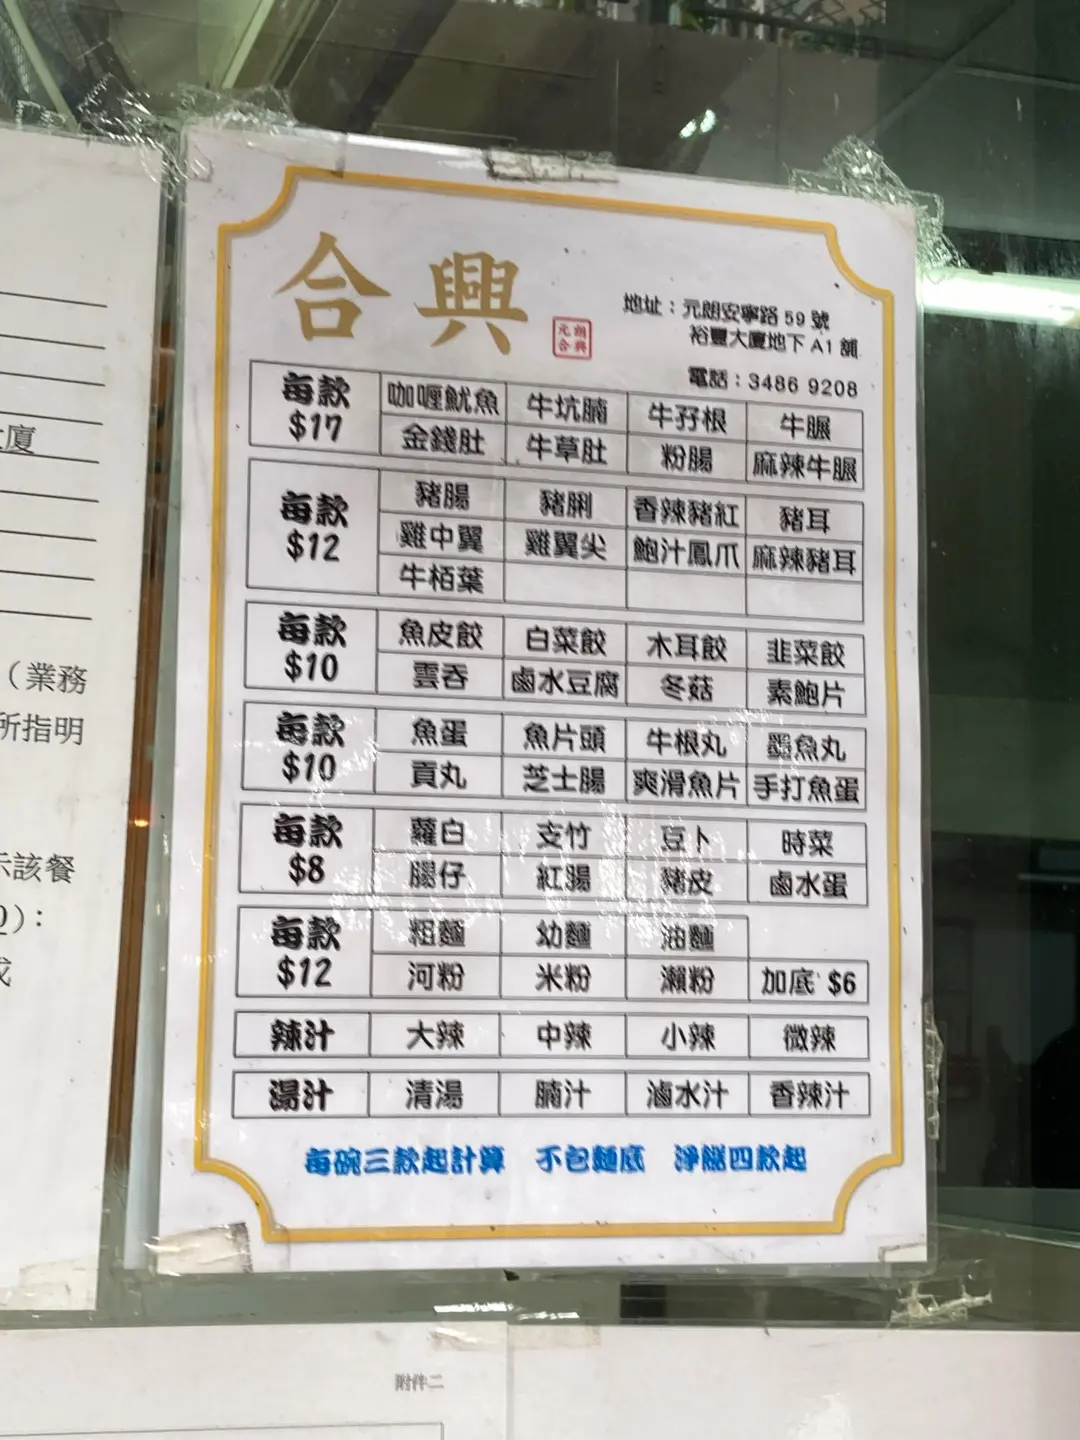 合興
元朗
合興
地址：元朗安寧路 59 號
裕豐大廈地下 A1 舖
電話：3486 9208
每款 $17
咖喱魷魚 牛坑腩 牛孖根 牛𦟌
金錢肚 牛草肚 粉腸 麻辣牛𦟌
每款 $12
豬腸 豬脷 香辣豬紅 豬耳
雞中翼 雞翼尖 鮑汁鳳爪 麻辣豬耳
牛栢葉
每款 $10
魚皮餃 白菜餃 木耳餃 韭菜餃
雲吞 鹵水豆腐 冬菇 素鮑片
每款 $10
魚蛋 魚片頭 牛根丸 墨魚丸
貢丸 芝士腸 爽滑魚片 手打魚蛋
每款 $8
蘿白 支竹 豆卜 時菜
腸仔 紅腸 豬皮 鹵水蛋
每款 $12
粗麵 幼麵 油麵
河粉 米粉 瀨粉 加底 $6
辣汁 大辣 中辣 小辣 微辣
湯汁 清湯 腩汁 滷水汁 香辣汁
每碗三款起計算 不包麵底 淨餸四款起
廈
（業務
所指明
示該餐
）：
附件二